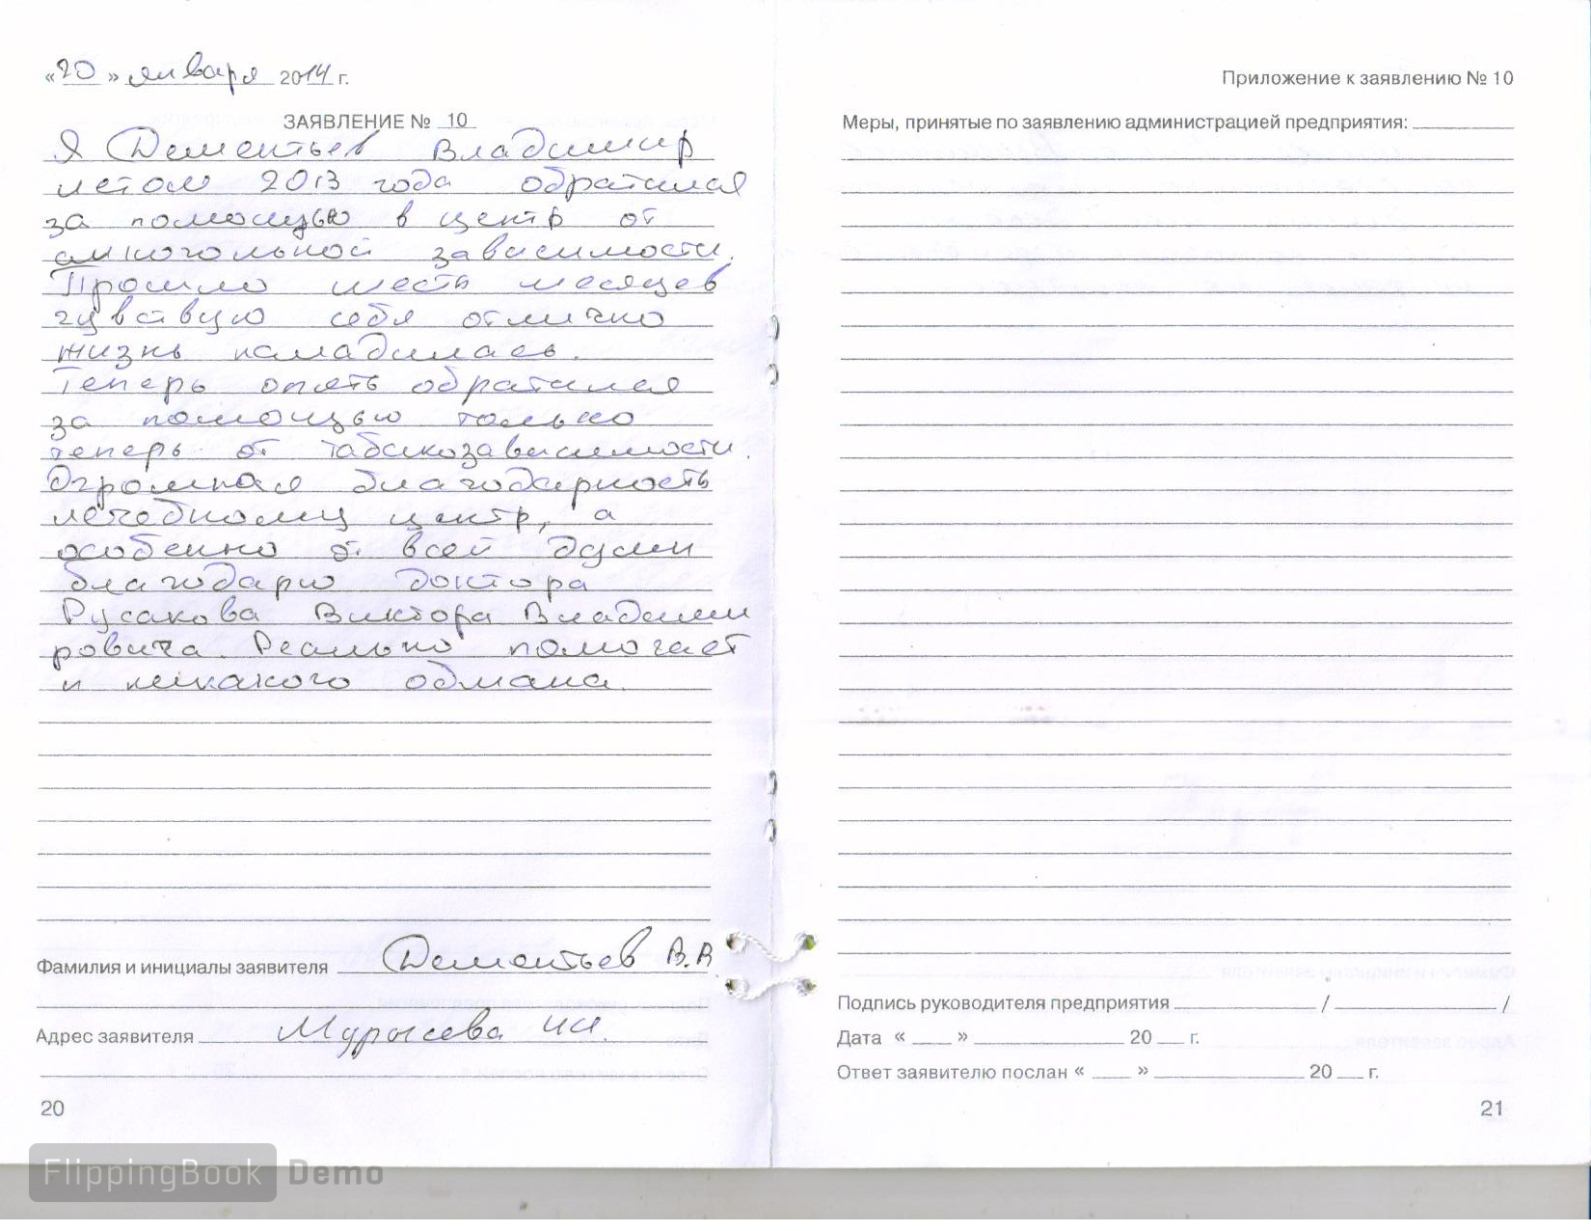 «20» января 2014 г.
ЗАЯВЛЕНИЕ № 10
Я Дементьев Владимир
летом 2013 года обратился
за помощью в центр от
алкогольной зависимости.
Прошло шесть месяцев
чувствую себя отлично
жизнь наладилась.
Теперь опять обратился
за помощью только
теперь от табакозависимости.
Огромная благодарность
лечебному центр, а
особенно от всей души
благодарю доктора
Русакова Виктора Владими
ровича. Реально помогает
и никакого обмана.
Фамилия и инициалы заявителя Дементьев В.В
Адрес заявителя Мурысева
20
Приложение к заявлению № 10
Меры, принятые по заявлению администрацией предприятия:
Подпись руководителя предприятия / /
Дата « » 20 г.
Ответ заявителю послан « » 20 г.
21
FlippingBook Demo